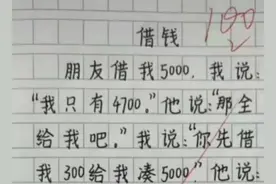 100
借钱
朋友借我5000，我说：
“我只有4700。”他说：“那全
给我吧。”我说：“你先借
我300给我凑5000”他说